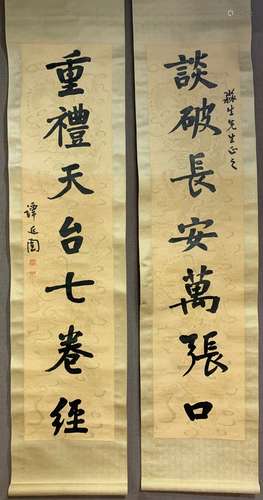 談破長安萬張口
森生先生正之
重禮天台七卷經
譚延闓